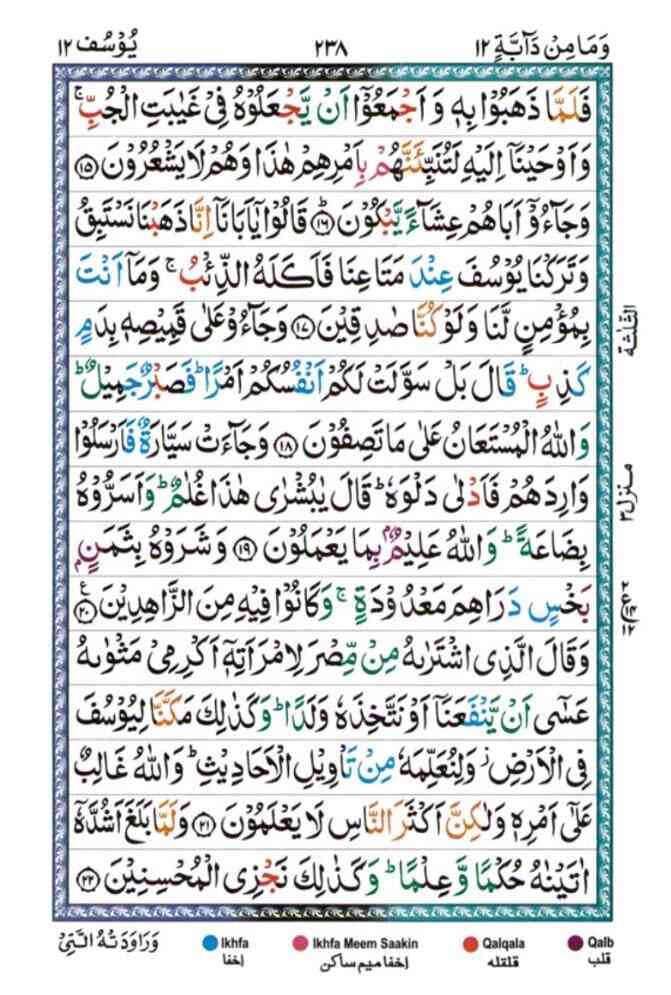 وَمَا مِنْ دَآبَّةٍ ١٢
٢٣٨
يُوْسُف ١٢
فَلَمَّا ذَهَبُوْا بِهٖ وَاَجْمَعُوْٓا اَنْ يَّجْعَلُوْهُ فِيْ غَيٰبَتِ الْجُبِّ ۚ
وَاَوْحَيْنَآ اِلَيْهِ لَتُنَبِّئَنَّهُمْ بِاَمْرِهِمْ هٰذَا وَهُمْ لَا يَشْعُرُوْنَ ﴿١٥﴾
وَجَآءُوْٓ اَبَاهُمْ عِشَآءً يَّبْكُوْنَ ؕ﴿١٦﴾ قَالُوْا يٰٓاَبَانَآ اِنَّا ذَهَبْنَا نَسْتَبِقُ
وَتَرَكْنَا يُوْسُفَ عِنْدَ مَتَاعِنَا فَاَكَلَهُ الذِّئْبُ ۚ وَمَآ اَنْتَ
بِمُؤْمِنٍ لَّنَا وَلَوْ كُنَّا صٰدِقِيْنَ ﴿١٧﴾ وَجَآءُوْ عَلٰى قَمِيْصِهٖ بِدَمٍ
كَذِبٍ ؕ قَالَ بَلْ سَوَّلَتْ لَكُمْ اَنْفُسُكُمْ اَمْرًا ؕ فَصَبْرٌ جَمِيْلٌ ؕ
وَاللّٰهُ الْمُسْتَعَانُ عَلٰى مَا تَصِفُوْنَ ﴿١٨﴾ وَجَآءَتْ سَيَّارَةٌ فَاَرْسَلُوْا
وَارِدَهُمْ فَاَدْلٰى دَلْوَهٗ ؕ قَالَ يٰبُشْرٰى هٰذَا غُلٰمٌ ؕ وَاَسَرُّوْهُ
بِضَاعَةً ؕ وَاللّٰهُ عَلِيْمٌۢ بِمَا يَعْمَلُوْنَ ﴿١٩﴾ وَشَرَوْهُ بِثَمَنٍۢ
بَخْسٍ دَرَاهِمَ مَعْدُوْدَةٍ ۚ وَكَانُوْا فِيْهِ مِنَ الزَّاهِدِيْنَ ﴿٢٠﴾ ع
وَقَالَ الَّذِى اشْتَرٰىهُ مِنْ مِّصْرَ لِامْرَاَتِهٖٓ اَكْرِمِيْ مَثْوٰىهُ
عَسٰٓى اَنْ يَّنْفَعَنَآ اَوْ نَتَّخِذَهٗ وَلَدًا ؕ وَكَذٰلِكَ مَكَّنَّا لِيُوْسُفَ
فِى الْاَرْضِ ؗ وَلِنُعَلِّمَهٗ مِنْ تَاْوِيْلِ الْاَحَادِيْثِ ؕ وَاللّٰهُ غَالِبٌ
عَلٰٓى اَمْرِهٖ وَلٰكِنَّ اَكْثَرَ النَّاسِ لَا يَعْلَمُوْنَ ﴿٢١﴾ وَلَمَّا بَلَغَ اَشُدَّهٗٓ
اٰتَيْنٰهُ حُكْمًا وَّعِلْمًا ؕ وَكَذٰلِكَ نَجْزِى الْمُحْسِنِيْنَ ﴿٢٢﴾
الثلثة
منزل ٣
ع
وَرَاوَدَتْهُ الَّتِيْ
Ikhfa
اخفا
Ikhfa Meem Saakin
اخفا ميم ساكن
Qalqala
قلقله
Qalb
قلب